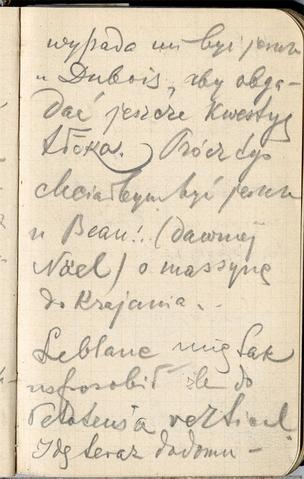 wypada mi być jeszcze
u Dubois, aby obga-
dać jeszcze Kwestyę
tłoka. Prócz tego
chciałbym być jeszcze
u Beau!. (dawniej
Noël) o massynę
do Krajania. -
Leblanc mię tak
usposobił źle do
rectical
Idę teraz do domu -